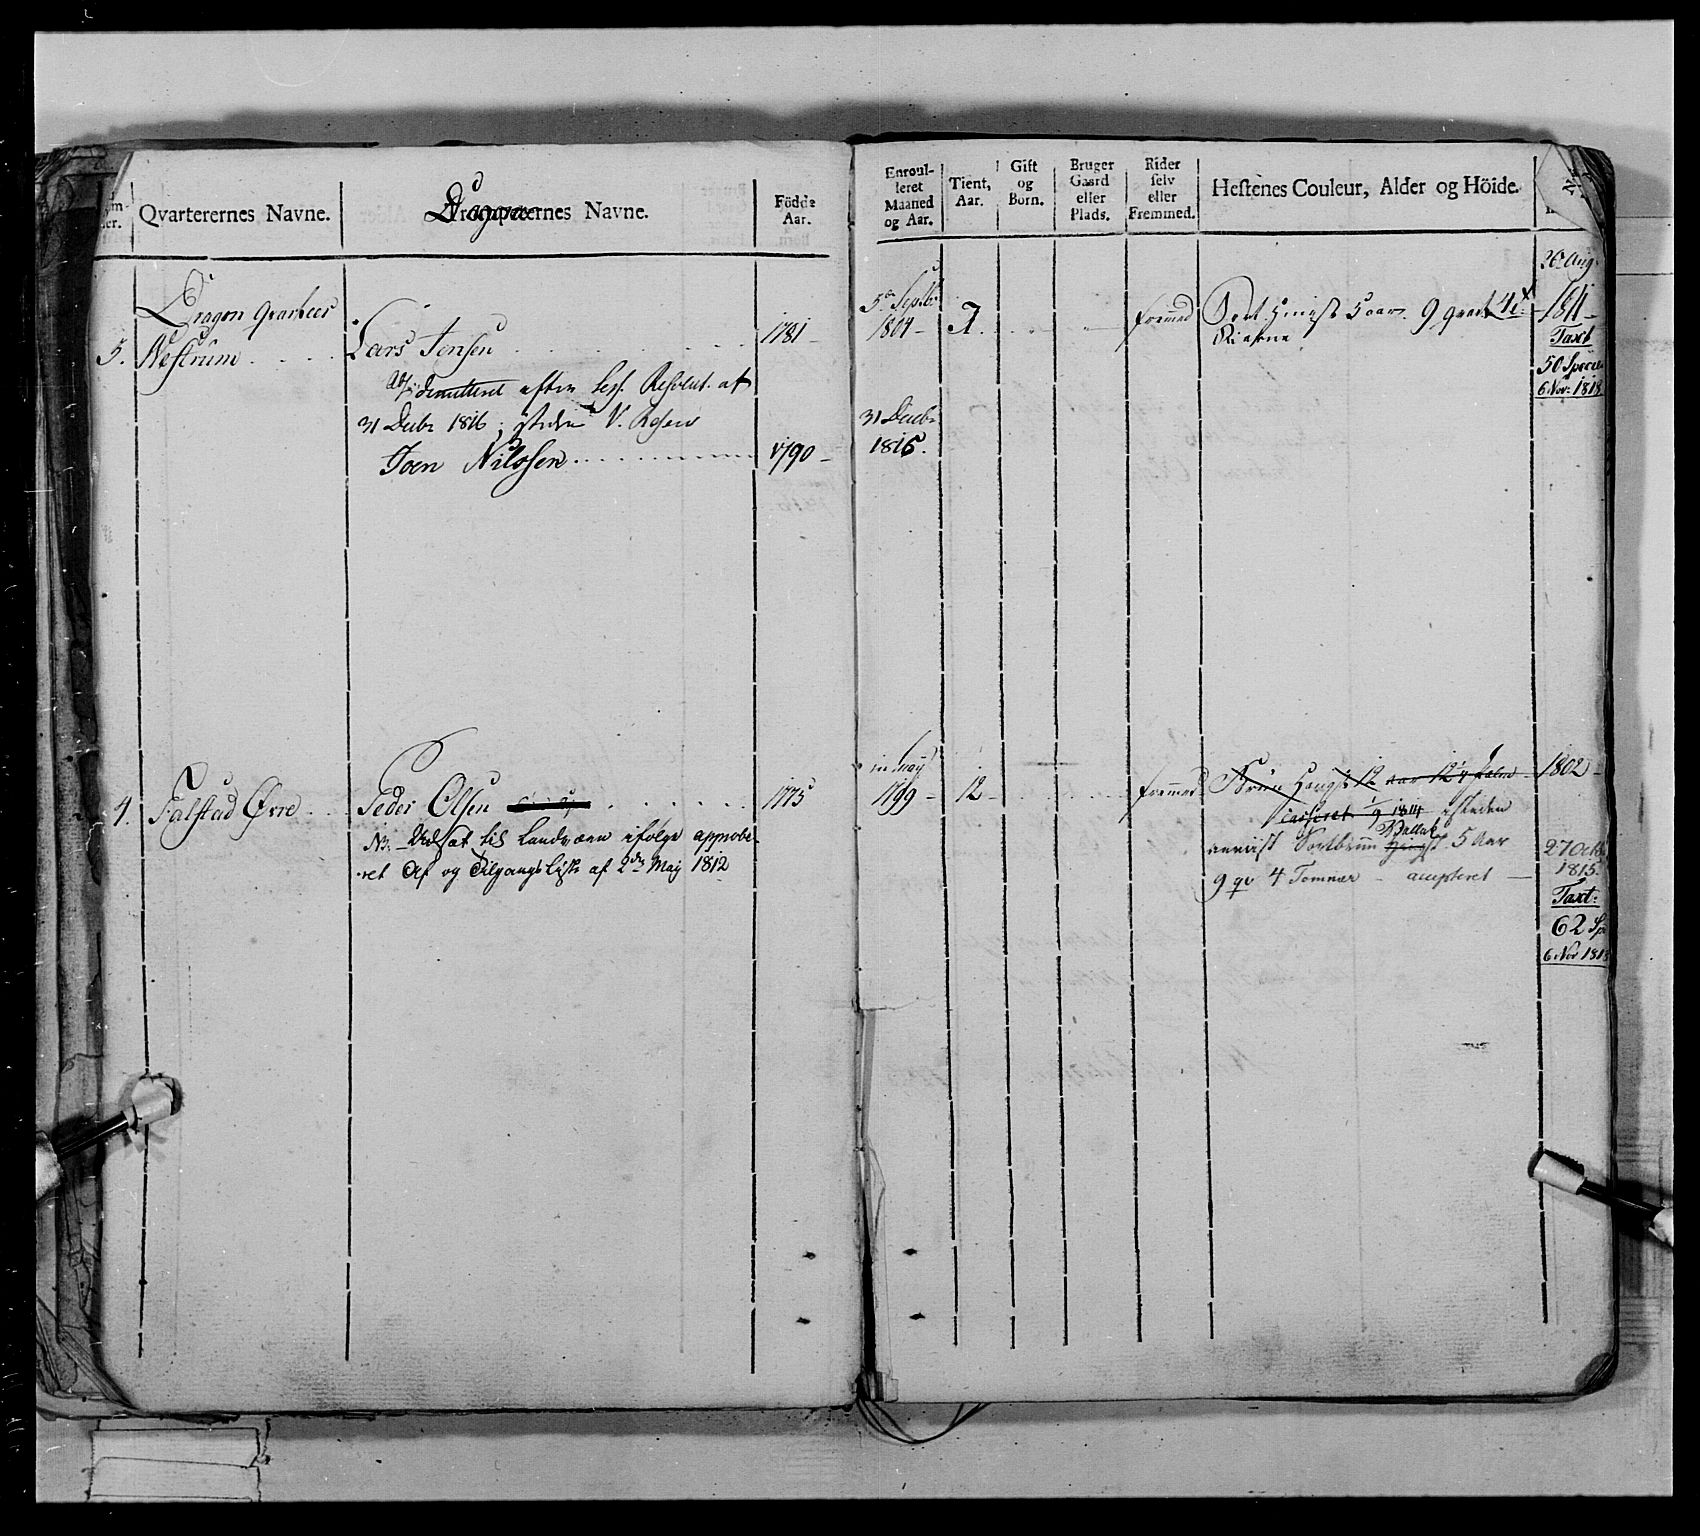 Qvarterernes Navne.
Dragonernes Navne.
Födde
Aar.
Enroul-
leret
Maaned
og Aar.
Tient,
Aar.
Gift
og
Born.
Bruger
Gaard
eller
Plads.
Rider
selv
eller
Fremmed.
Hestenes Couleur, Alder og Höide.
Dragon Qvarteer
Lars Jensen
1781
Septbr
1804
7
fremed
5 aar. 9 qvart
26 Aug.
1811
Taxt
50 Species
6 Nov: 1818
demitteret efter Res. Resolut. af
31 Decbr 1816, isteden V. Rosen
Joen Nilssen
1790
31 Decbr
1816.
4.
Falstad Øvre
Peder Olsen
1775
1799
12
fremmed
Bruun Hengst 12 aar
1802
NB. Udsat til Landværn ifølge approbe-
ret Af og Tilgangs Liste af 2den Maj 1812
casseret 1814 isteden
anviist Sortbruun Vallak Hengst 5 Aar
9 qv 4 Tommer accepteret
27 Octb
1815.
Taxt:
62 Sp
6 Nov 1818